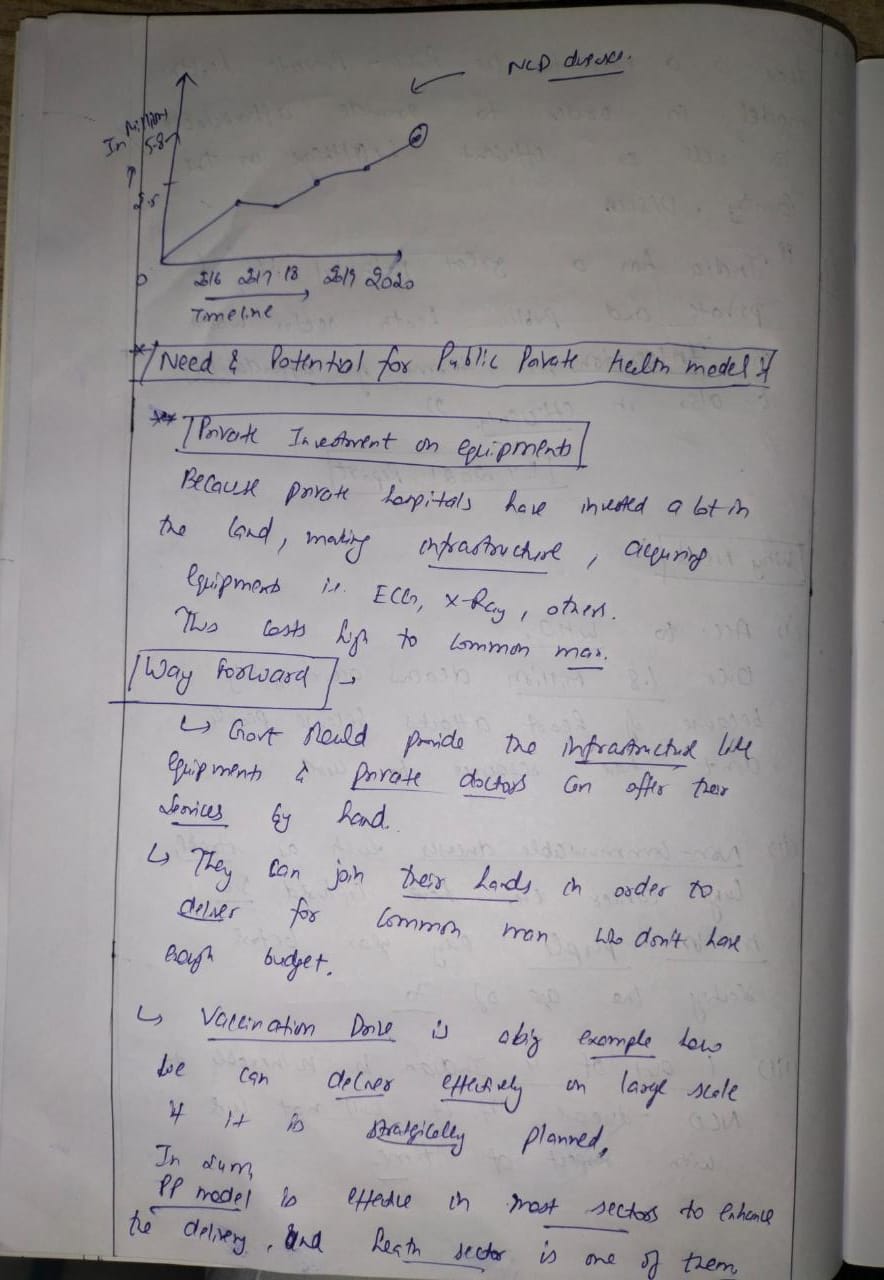 NCD diseases.
In Million
5.8
2.5
0
2016 2017 18 2019 2020
Timeline
* Need & Potential for Public Private Health model
** Private Investment on equipments
Because private hospitals have invested a lot in
the land, making infrastructure, acquring
equipments i.e. ECG, X-Ray, others.
This costs high to common man.
Way Forward →
↳ Govt should provide the infrastructure like
equipments & private doctors can offer their
services by hand.
↳ They can join their hands in order to
deliver for common man who don't have
enough budget.
↳ Vaccination Drive is a big example how
we can deliver effectively on large scale
if it is stratgically planned,
In sum,
PP model is effective in most sectors to enhance
the delivery, and heath sector is one of them,